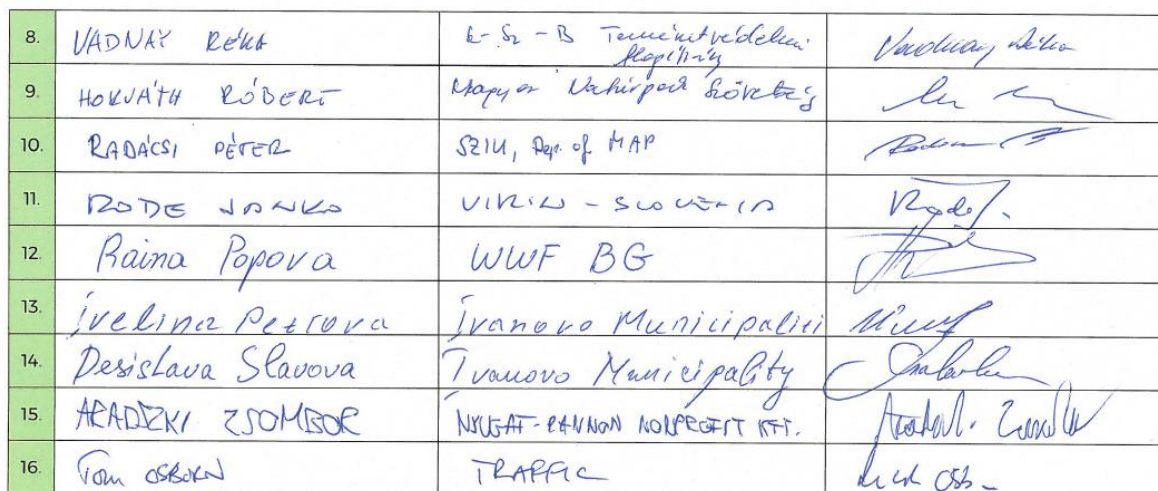 8. VADNAY RÉKA E-Sz-B Természetvédelmi Alapítvány Vadnay Réka
9. HORVÁTH RÓBERT Magyar Natúrpark Szövetség
10. RADÁCSI PÉTER SZIU, Dep. of MAP
11. RODE JANKO VIRIN - SLOVENIA Rode J.
12. Raina Popova WWF BG
13. Ivelina Petrova Ivanovo Municipaliti
14. Desislava Slavova Ivanovo Municipality
15. ARADSZKI ZSOMBOR NYUGAT-PANNON NONPROFIT KFT.
16. Tom OSBORN TRAFFIC